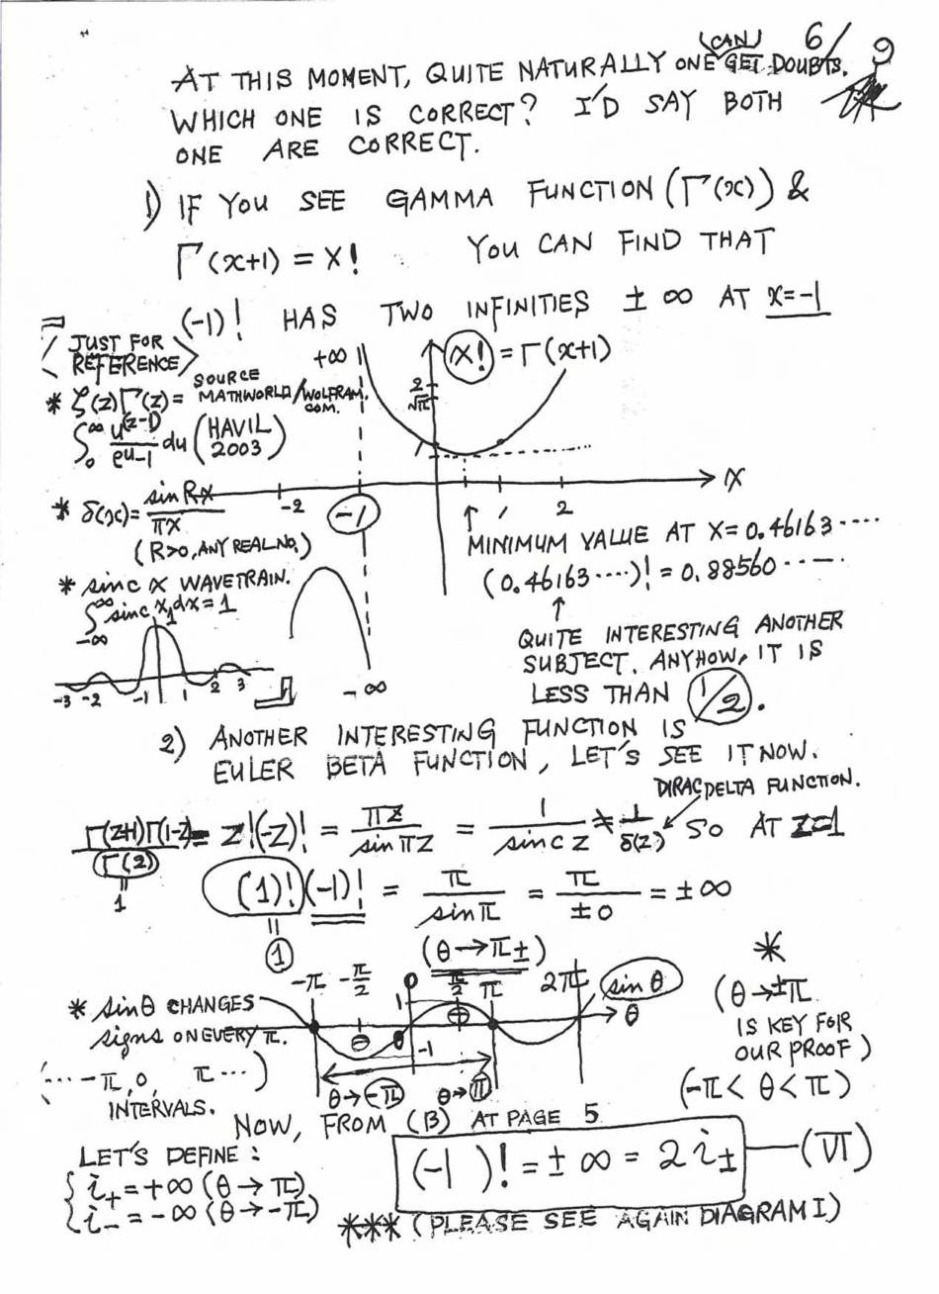 6/
(CAN)
AT THIS MOMENT, QUITE NATURALLY ONE GET DOUBTS.
WHICH ONE IS CORRECT? I'D SAY BOTH
ONE ARE CORRECT.
1) IF YOU SEE GAMMA FUNCTION (Γ(x)) &
Γ(x+1) = X! YOU CAN FIND THAT
(-1)! HAS TWO INFINITIES ± ∞ AT x=-1
< JUST FOR REFERENCE >
* ζ(z)Γ(z) = ∫₀^∞ u^(z-1)/(e^u-1) du (HAVIL 2003)
SOURCE MATHWORLD/WOLFRAM.COM.
* δ(x) = sin Rx / πx
(R>0, ANY REAL NO.)
* sinc x WAVETRAIN.
∫_-∞^∞ sinc x dx = 1
1
-3 -2 -1 1 2 3
+∞ x! = Γ(x+1)
2/√π
1
-2 -1 1 2 x
-∞
MINIMUM VALUE AT X = 0.46163····
(0.46163····)! = 0.88560····
QUITE INTERESTING ANOTHER
SUBJECT. ANYHOW, IT IS
LESS THAN 1/2.
2) ANOTHER INTERESTING FUNCTION IS
EULER BETA FUNCTION, LET'S SEE IT NOW.
DIRAC DELTA FUNCTION.
Γ(z+1)Γ(1-z)/Γ(2) = z!(-z)! = πz/sin πz = 1/sinc z ≠ 1/δ(z) SO AT z=1
1
(1)!(-1)! = π/sin π = π/±0 = ±∞
1
(θ→π±)
-π -π/2 0 π/2 π 2π sin θ
1
⊖ ⊕ θ
-1
θ→-π θ→π
* sin θ CHANGES
signs ON EVERY π.
(··· -π, 0, π ···)
INTERVALS.
*
(θ→±π
IS KEY FOR
OUR PROOF)
(-π < θ < π)
NOW, FROM (B) AT PAGE 5
LET'S DEFINE:
{ i₊ = +∞ (θ→π)
{ i₋ = -∞ (θ→-π)
(-1)! = ± ∞ = 2 i± —(VI)
*** (PLEASE SEE AGAIN DIAGRAM I)